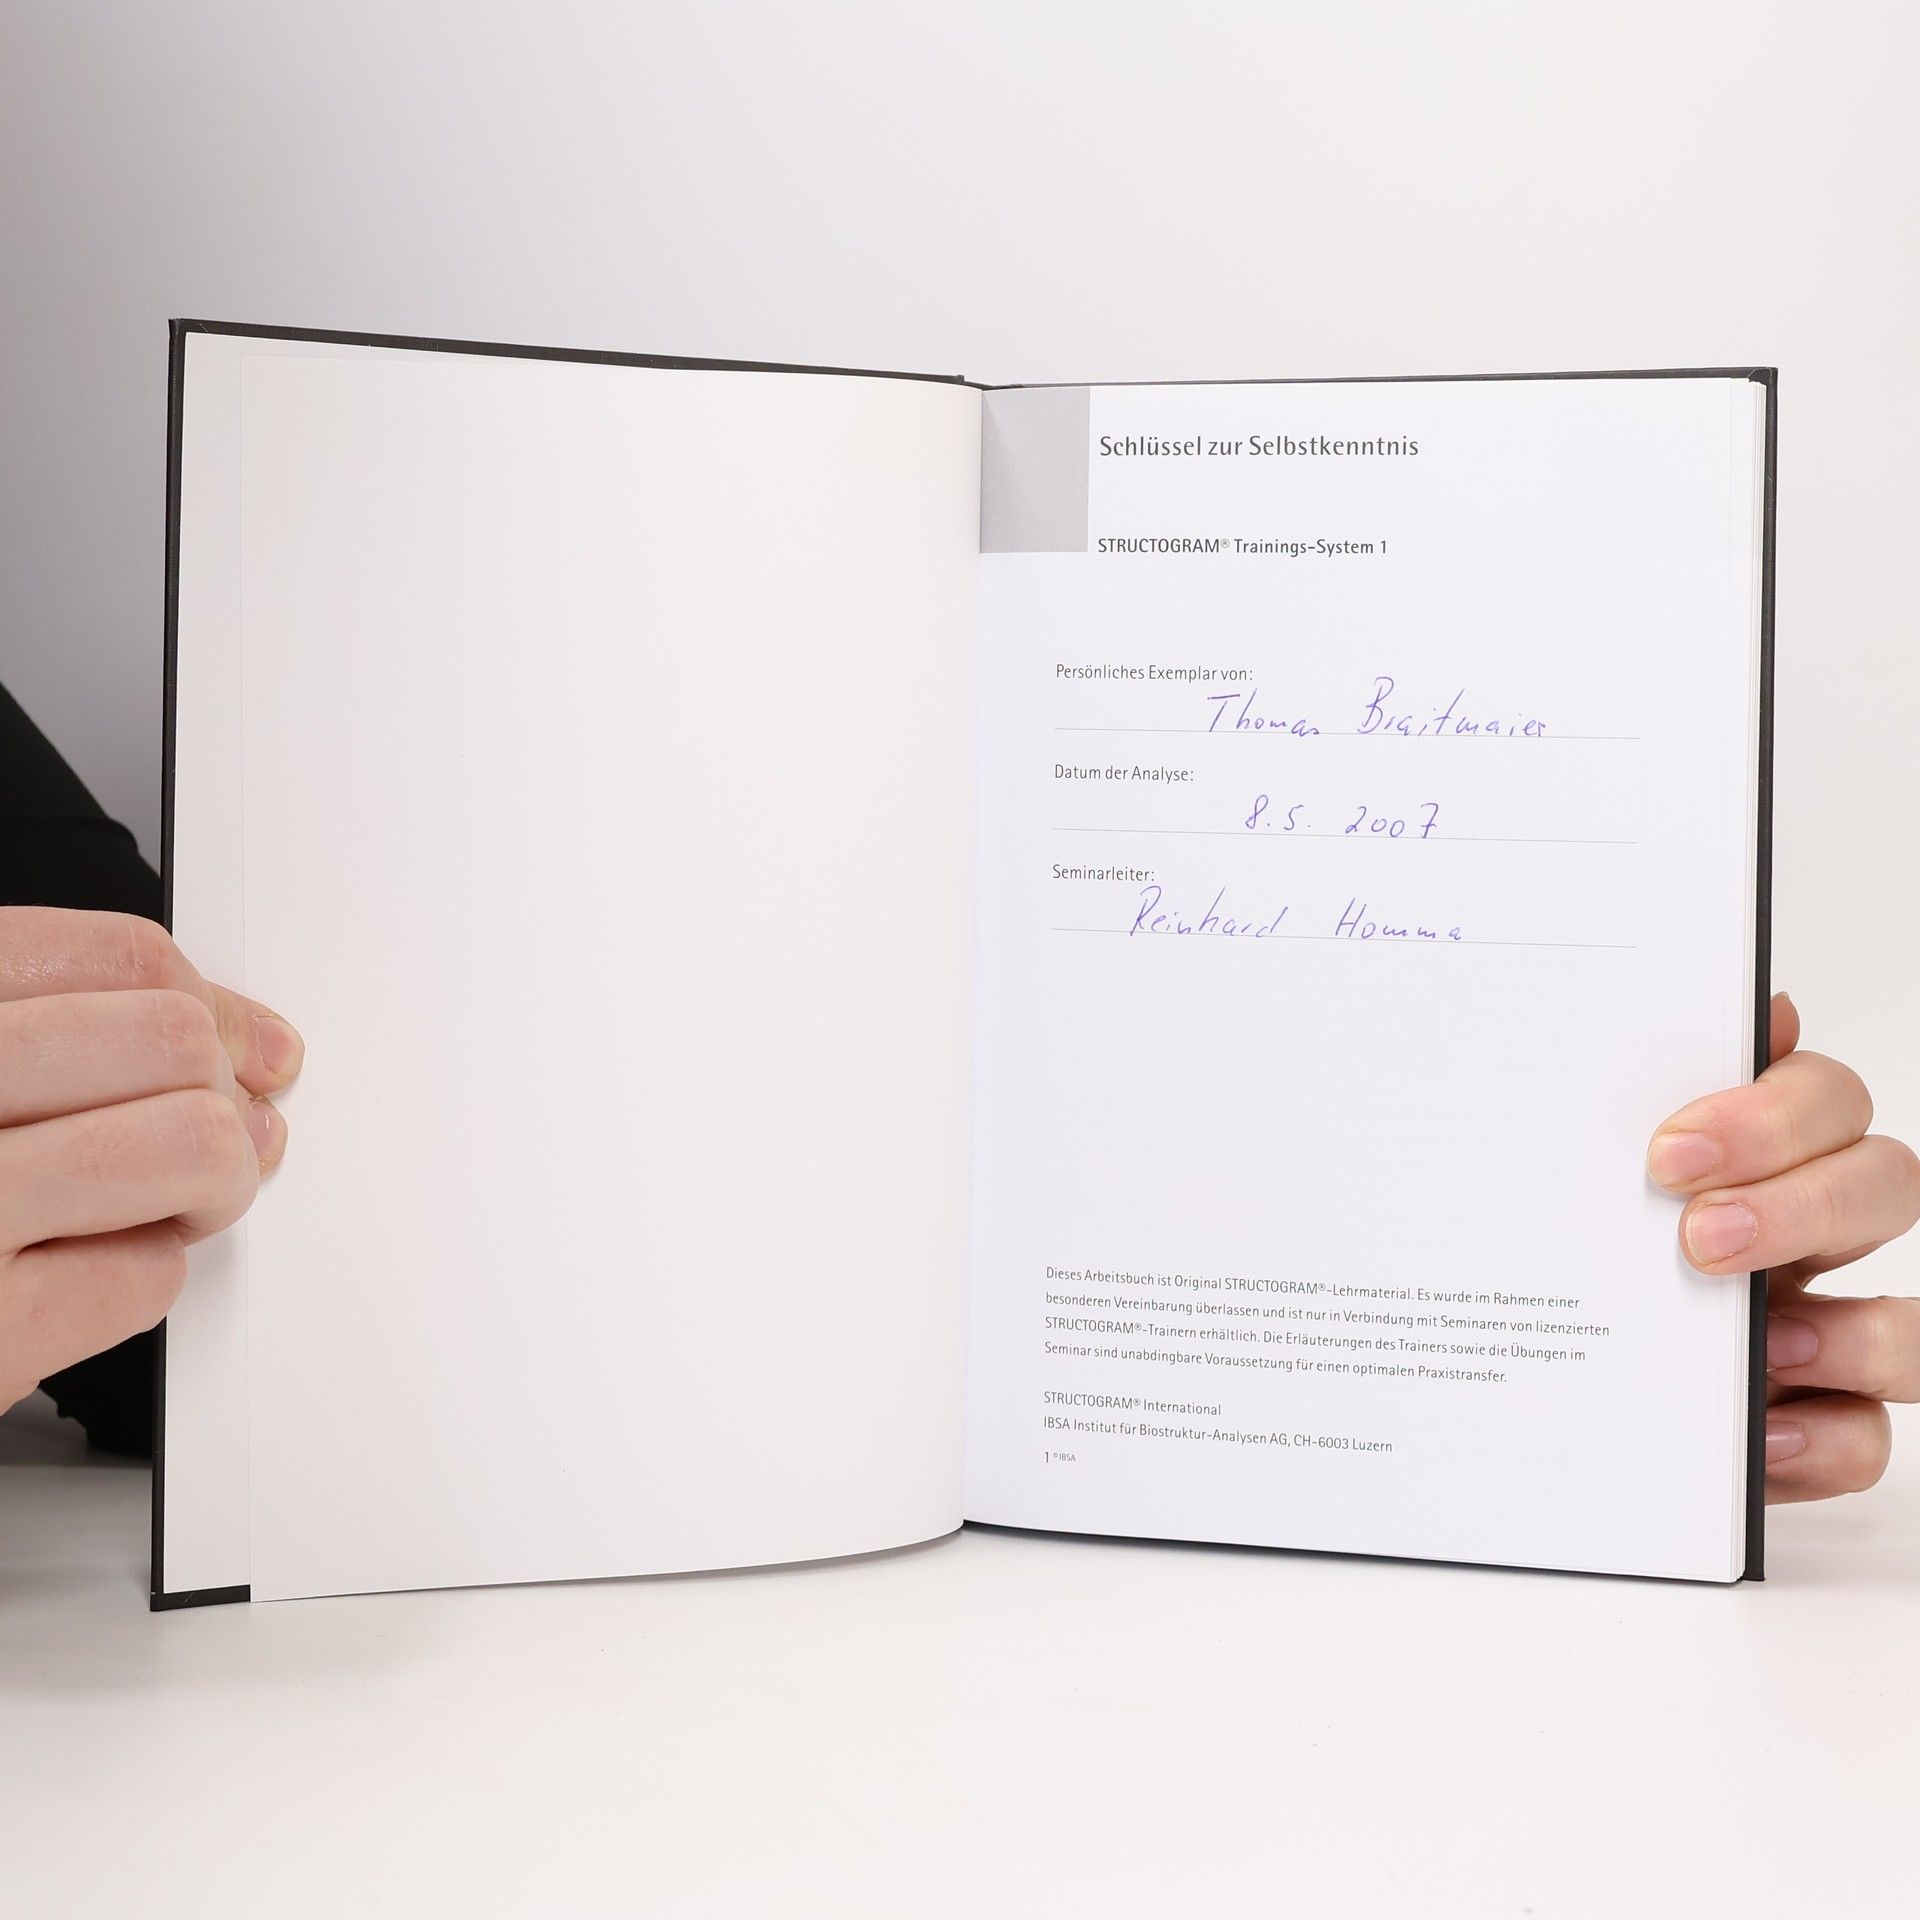 Schlüssel zur Selbstkenntnis
STRUCTOGRAM® Trainings-System 1
Persönliches Exemplar von:
Thomas Braitmaier
Datum der Analyse:
8.5. 2007
Seminarleiter:
Reinhard Homma
Dieses Arbeitsbuch ist Original STRUCTOGRAM®-Lehrmaterial. Es wurde im Rahmen einer
besonderen Vereinbarung überlassen und ist nur in Verbindung mit Seminaren von lizenzierten
STRUCTOGRAM®-Trainern erhältlich. Die Erläuterungen des Trainers sowie die Übungen im
Seminar sind unabdingbare Voraussetzung für einen optimalen Praxistransfer.
STRUCTOGRAM® International
IBSA Institut für Biostruktur-Analysen AG, CH-6003 Luzern
1 © IBSA